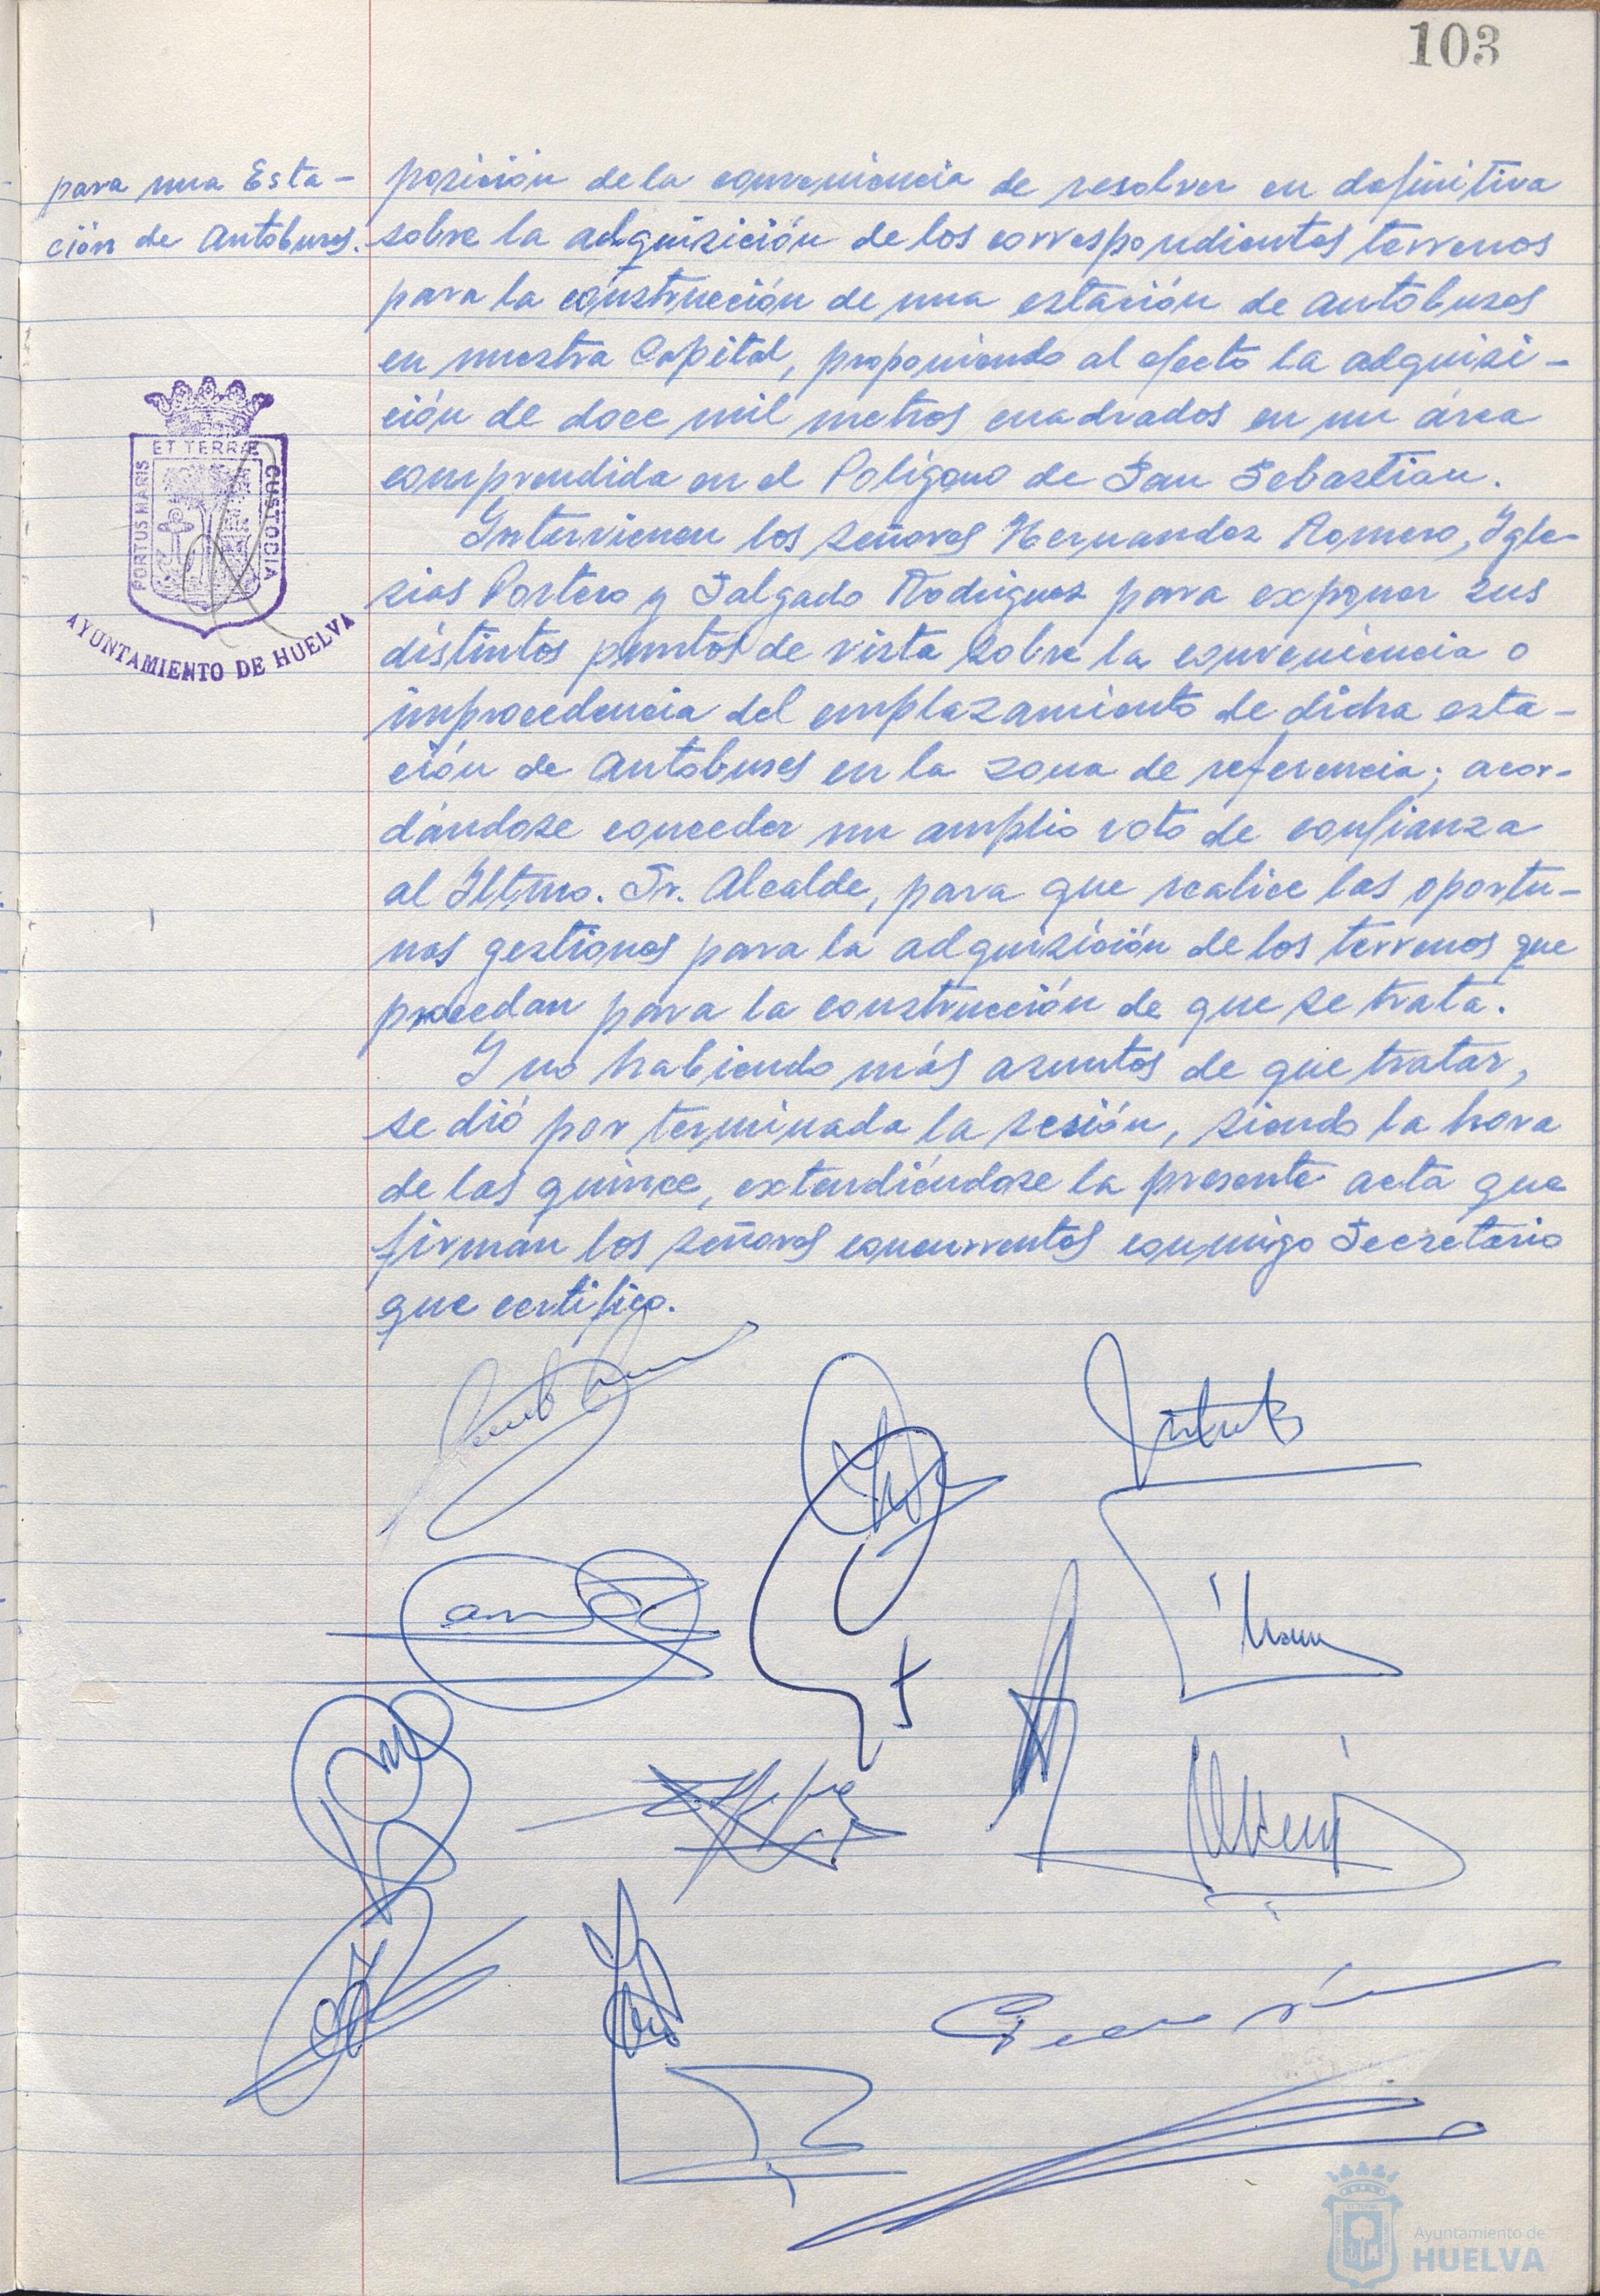 103
para una Esta-
ción de Autobuses.
posición de la conveniencia de resolver en definitiva
sobre la adquisición de los correspondientes terrenos
para la construcción de una estación de autobuses
en nuestra Capital, proponiendo al efecto la adquisi-
ción de doce mil metros cuadrados en un área
comprendida en el Polígono de San Sebastián.
Intervienen los señores Hernandez Romero, Igle-
sias Portero y Salgado Rodriguez para exponer sus
distintos puntos de vista sobre la conveniencia o
improcedencia del emplazamiento de dicha esta-
ción de Autobuses en la zona de referencia; acor-
dándose conceder un amplio voto de confianza
al Iltmo. Sr. Alcalde, para que realice las oportu-
nas gestiones para la adquisición de los terrenos que
procedan para la construcción de que se trata.
Y no habiendo más asuntos de que tratar,
se dió por terminada la sesión, siendo la hora
de las quince, extendiéndose la presente acta que
firman los señores concurrentes conmigo Secretario
que certifico.
PORTUS MARIS
ET TERRÆ
CUSTODIA
AYUNTAMIENTO DE HUELVA
Ayuntamiento de
HUELVA